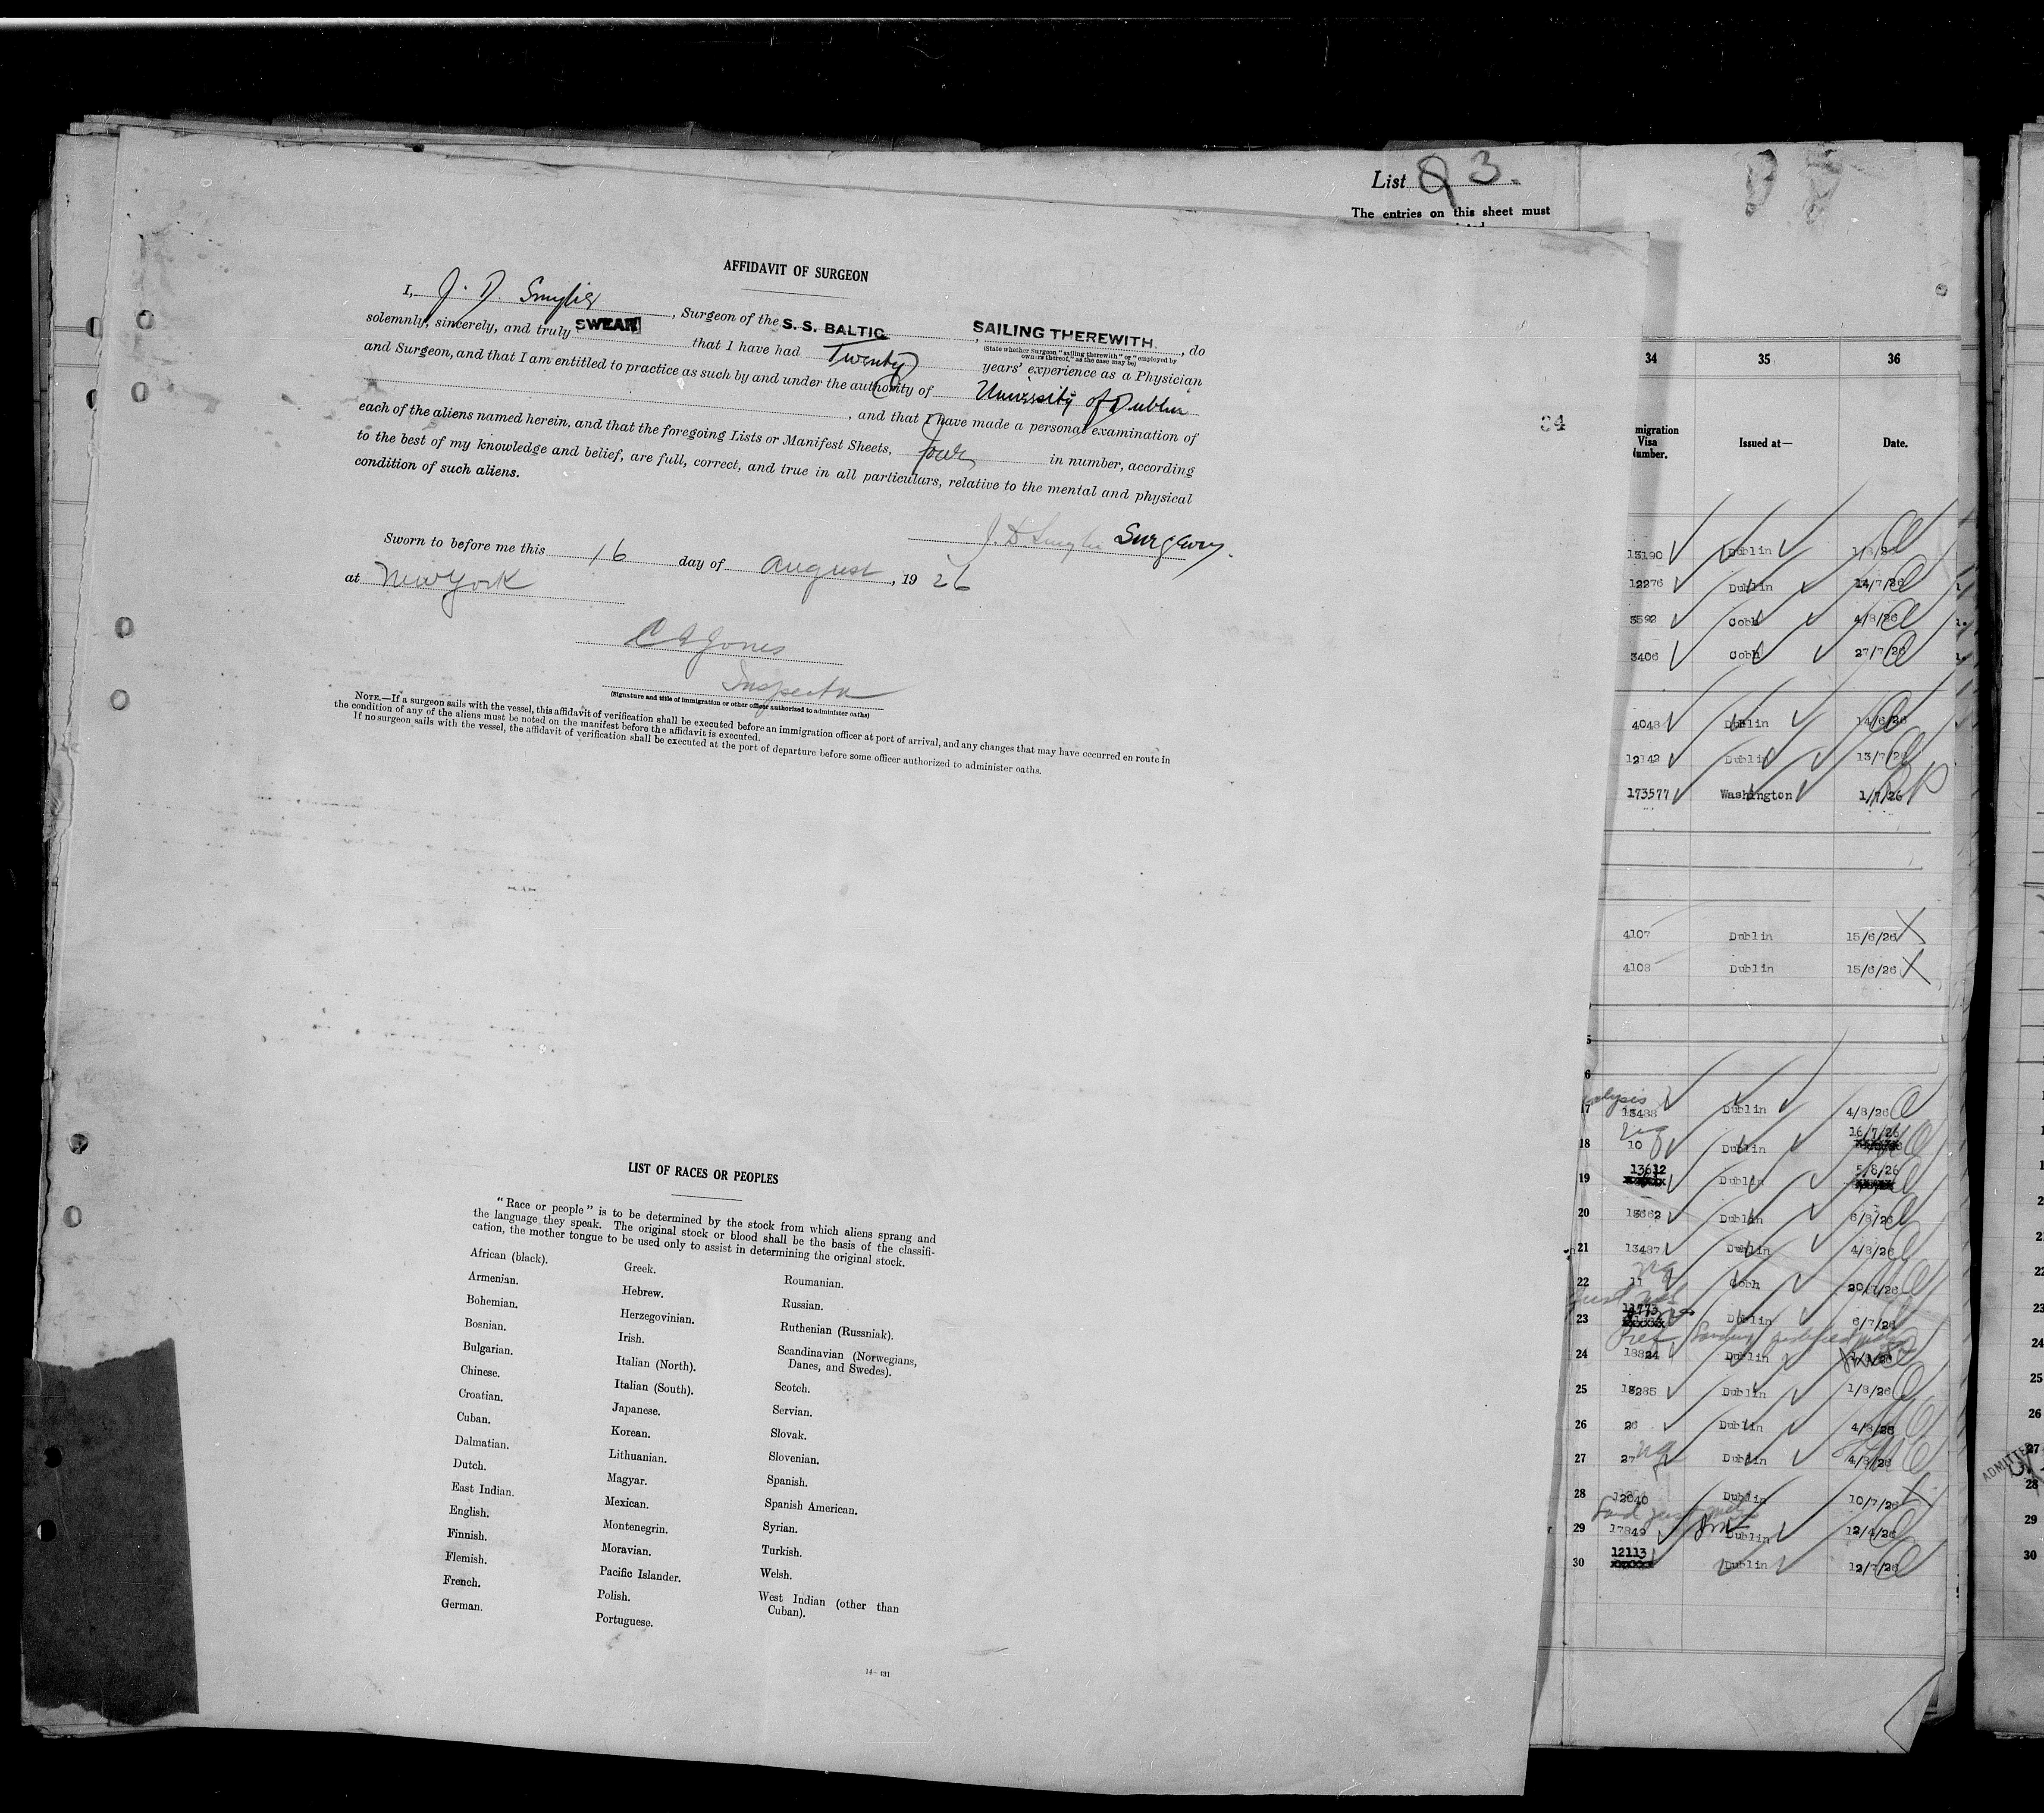 List 3.
The entries on this sheet must
AFFIDAVIT OF SURGEON
I, J. D. Smylie, Surgeon of the S. S. BALTIC, SAILING THEREWITH, do
(State whether Surgeon "sailing therewith" or "employed by
owners thereof," as the case may be)
solemnly, sincerely, and truly SWEAR that I have had Twenty years' experience as a Physician
and Surgeon, and that I am entitled to practice as such by and under the authority of University of Dublin
, and that I have made a personal examination of
each of the aliens named herein, and that the foregoing Lists or Manifest Sheets, four in number, according
to the best of my knowledge and belief, are full, correct, and true in all particulars, relative to the mental and physical
condition of such aliens.
J. D. Smylie Surgeon.
Sworn to before me this 16 day of August, 19 26
at New York
Jones
Inspector
(Signature and title of immigration or other officer authorized to administer oaths)
NOTE.—If a surgeon sails with the vessel, this affidavit of verification shall be executed before an immigration officer at port of arrival, and any changes that may have occurred en route in
the condition of any of the aliens must be noted on the manifest before the affidavit is executed.
If no surgeon sails with the vessel, the affidavit of verification shall be executed at the port of departure before some officer authorized to administer oaths.
LIST OF RACES OR PEOPLES
"Race or people" is to be determined by the stock from which aliens sprang and
the language they speak. The original stock or blood shall be the basis of the classifi-
cation, the mother tongue to be used only to assist in determining the original stock.
African (black).
Armenian.
Bohemian.
Bosnian.
Bulgarian.
Chinese.
Croatian.
Cuban.
Dalmatian.
Dutch.
East Indian.
English.
Finnish.
Flemish.
French.
German.
Greek.
Hebrew.
Herzegovinian.
Irish.
Italian (North).
Italian (South).
Japanese.
Korean.
Lithuanian.
Magyar.
Mexican.
Montenegrin.
Moravian.
Pacific Islander.
Polish.
Portuguese.
Roumanian.
Russian.
Ruthenian (Russniak).
Scandinavian (Norwegians,
Danes, and Swedes).
Scotch.
Servian.
Slovak.
Slovenian.
Spanish.
Spanish American.
Syrian.
Turkish.
Welsh.
West Indian (other than
Cuban).
34 35 36
migration
Visa
umber.
Issued at—
Date.
13190 Dublin
12276 Dublin 14/7/26
3592 Cobh 4/8/26
3406 Cobh 27/7/26
4048 Dublin 14/6/26
12142 Dublin 13/7/26
173577 Washington 1/7/26
4107 Dublin 15/6/26
4108 Dublin 15/6/26
17 13488 Dublin 4/8/26
18 10 Dublin 16/7/26
19 13612 Dublin 5/8/26
20 13662 Dublin 6/8/26
21 13487 Dublin 4/8/26
22 11 Cobh 20/7/26
23 11773 Dublin 6/7/26
24 18824 Dublin
25 13285 Dublin 1/8/26
26 26 Dublin 4/8/26
27 27 Dublin 4/8/26
28 12040 Dublin 10/7/26
29 17849 Dublin 12/4/26
30 12113 Dublin 12/7/26
23
24
25
26
27
ADMITTED
28
29
30